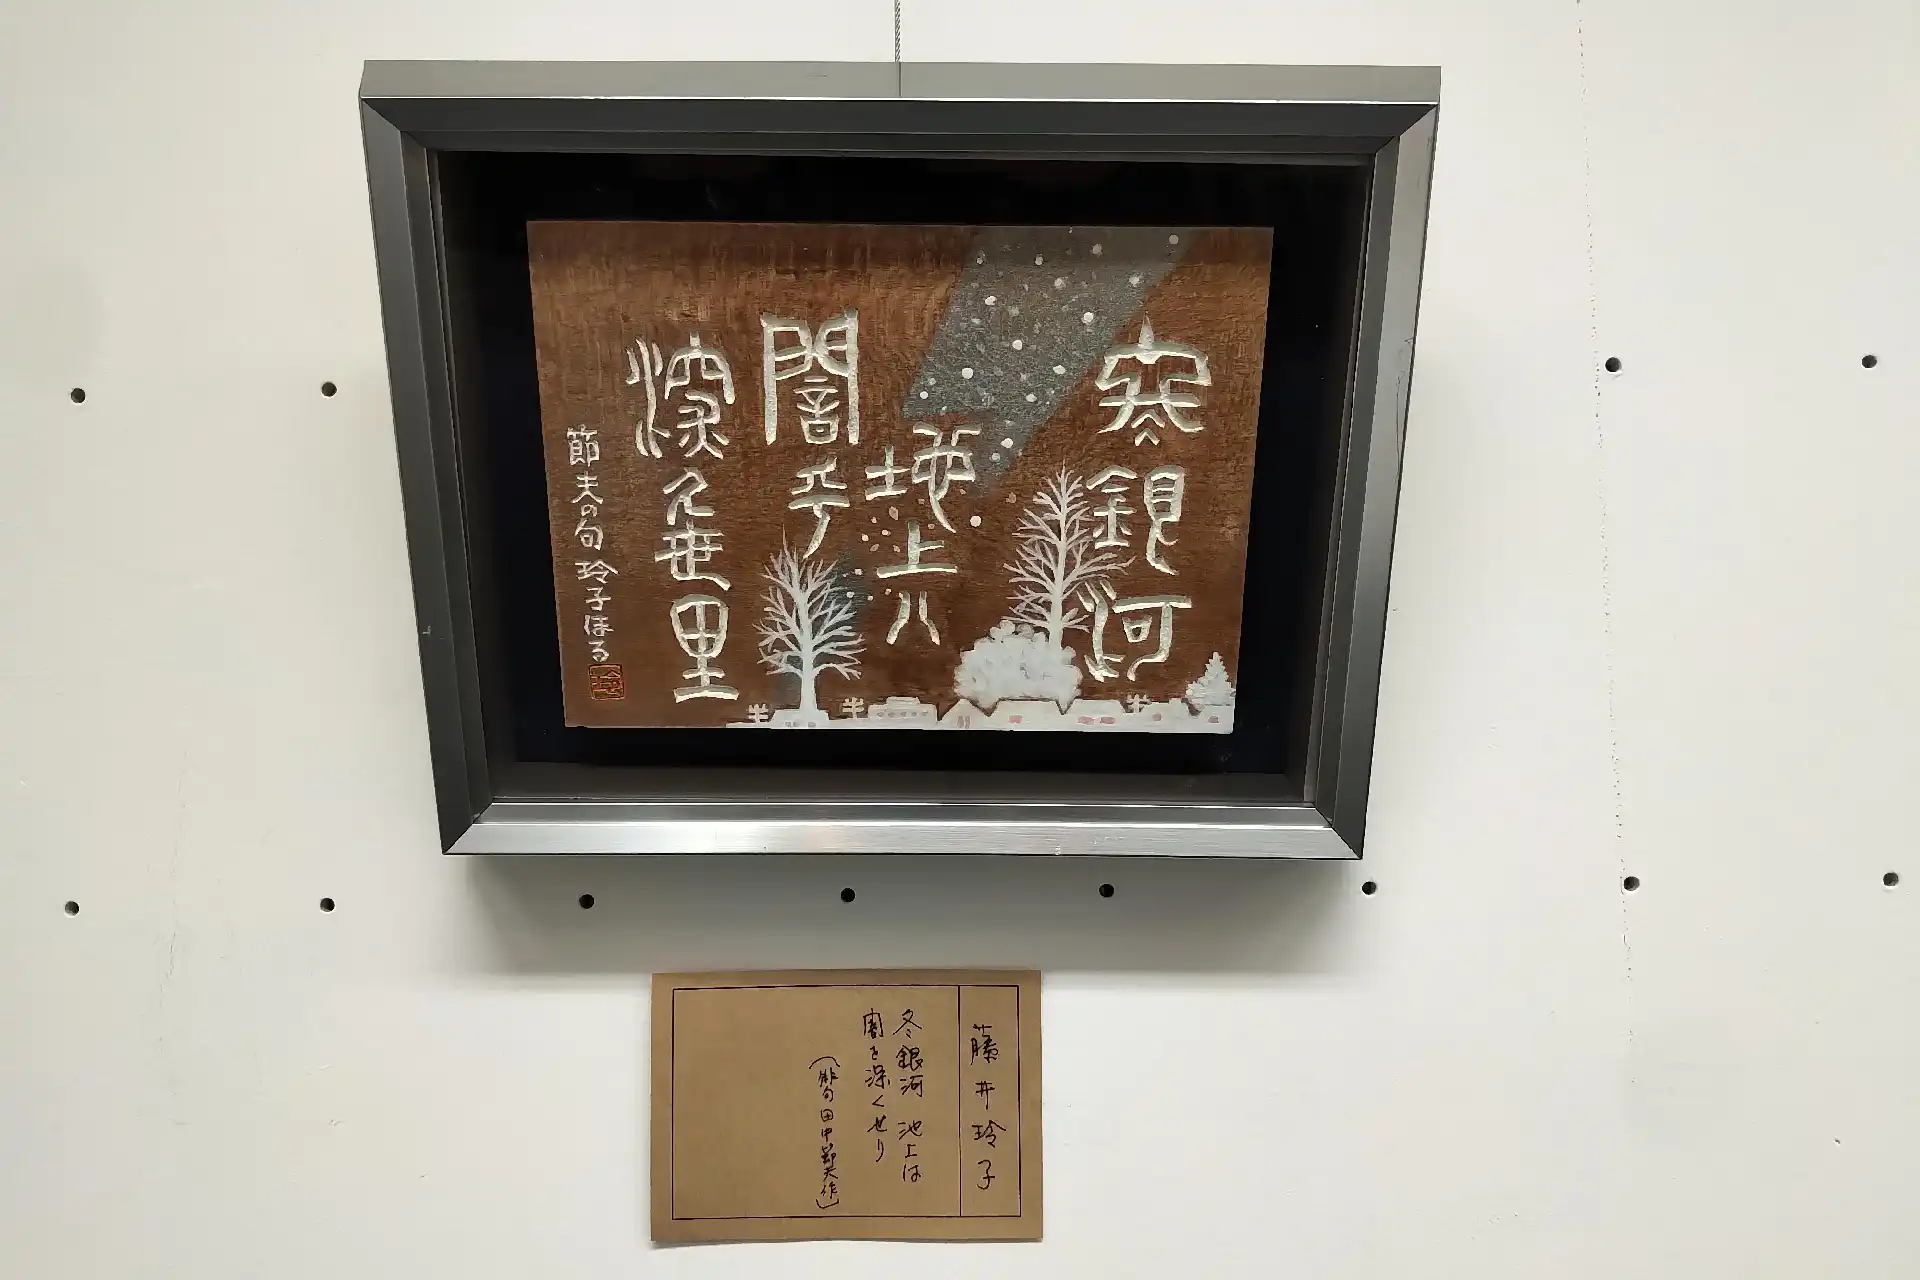 寒銀河
地上八
闇乎
深久世里
節夫の句 玲子ほる
玲
藤井玲子
冬銀河 池上は
闇を深くせり
(俳句田中節夫作)